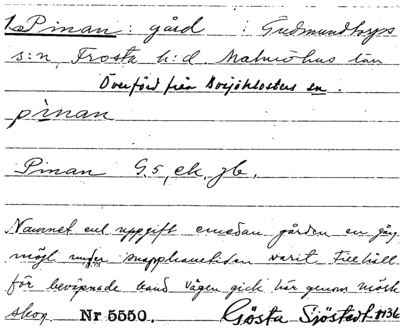 1a Pinan: gård : Gudmundtorps
s:n, Frosta h:d. Malmöhus län
Överförd från Bosjöklosters sn.
pinan
Pinan G.5, ek, jb.
Namnet enl uppgift emedan gården en gång
möjl under snapphanetiden varit tillhåll
för beväpnade band vägen gick här genom mörk
skog. Nr 5550. Gösta Sjöstedt 1936